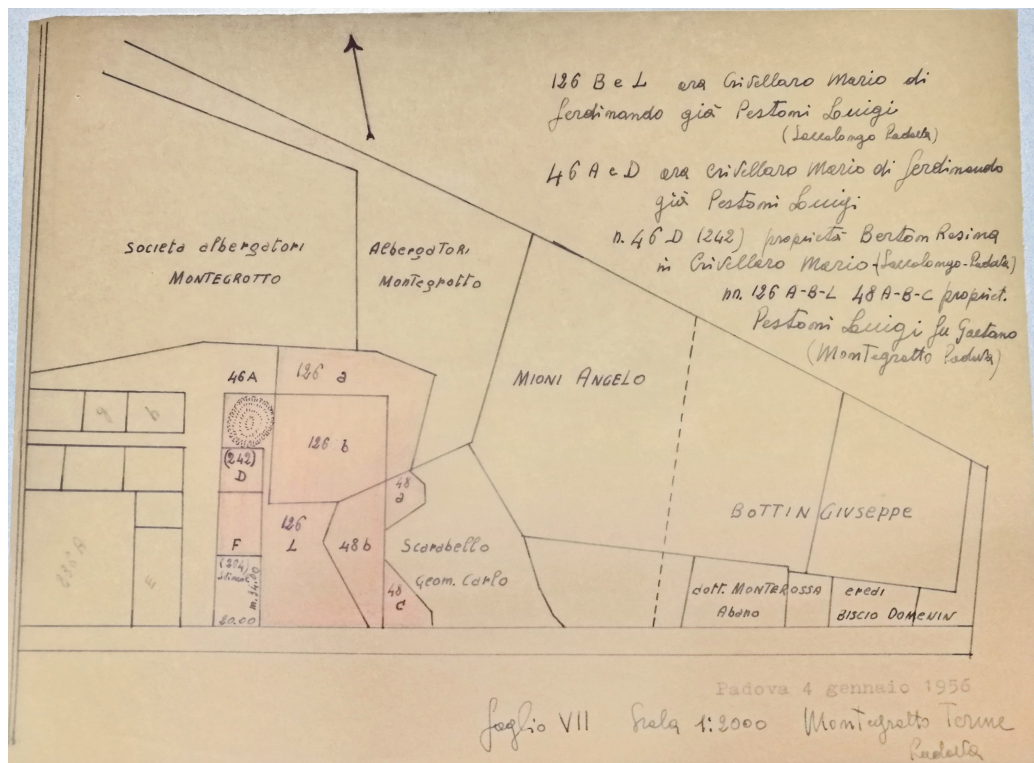 126 B e L ora Crivellaro Mario di
Ferdinando già Pestoni Luigi
(Saccolongo Padova)
46 A e D ora Crivellaro Mario di Ferdinando
già Pestoni Luigi
n. 46 D (242) proprietà Berton Resina
in Crivellaro Mario - (Saccolongo-Padova)
nn. 126 A-B-L 48 A-B-C propriet.
Pestoni Luigi fu Gaetano
(Montegrotto Padova)
Società albergatori
MONTEGROTTO
AlbergaTORI
Montegrotto
MIONI ANGELO
46A
126 a
126 b
(242)
D
48
a
126
L
48b
F
(204)
m. 24.00
20.00
48
C
Scarabello
Geom. Carlo
BOTTIN GIUSEPPE
dott. MONTEROSSA
Abano
eredi
BISCIO DOMENIN
Padova 4 gennaio 1956
foglio VII Scala 1:2000 Montegrotto Terme
Padova